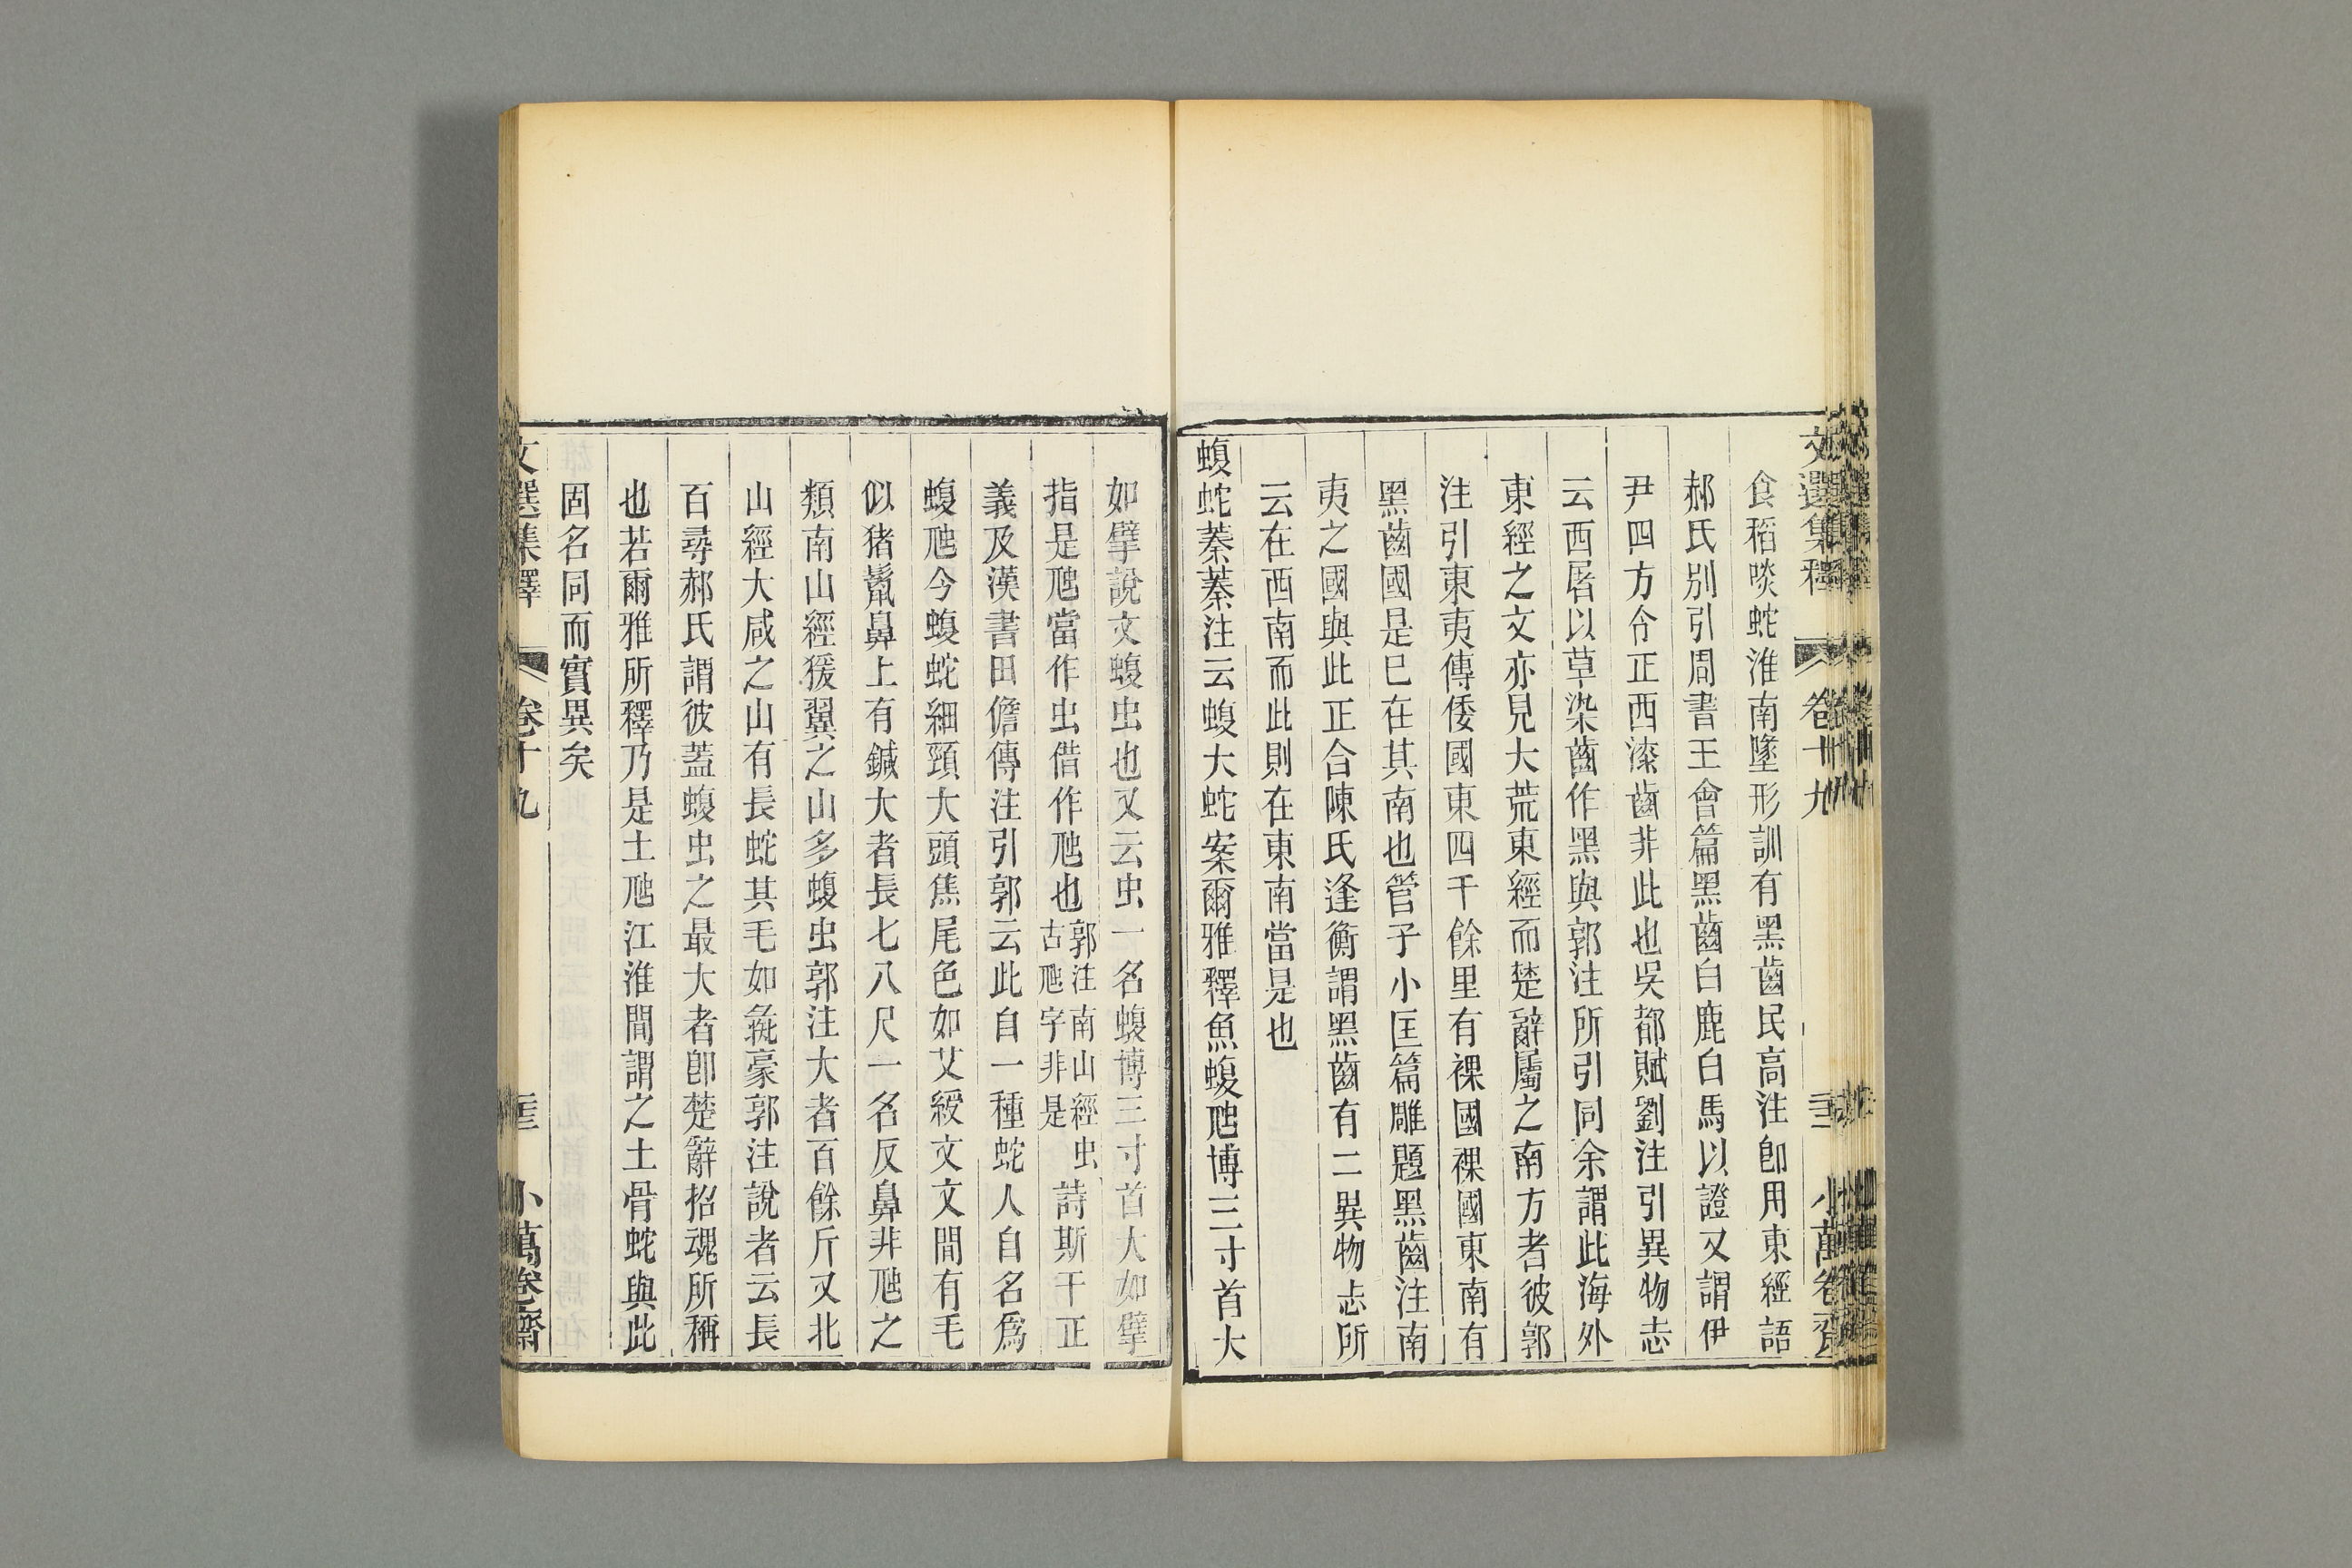 文選集釋 卷十九 小萬卷齋
食稻啖蛇淮南墬形訓有黑齒民高注卽用東經語
郝氏別引周書王會篇黑齒白鹿白馬以證又謂伊
尹四方令正西漆齒非此也吳都賦劉注引異物志
云西屠以草染齒作黑與郭注所引同余謂此海外
東經之文亦見大荒東經而楚辭屬之南方者彼郭
注引東夷傳倭國東四千餘里有裸國裸國東南有
黑齒國是已在其南也管子小匡篇雕題黑齒注南
夷之國與此正合陳氏逢衡謂黑齒有二異物志所
云在西南而此則在東南當是也
蝮蛇蓁蓁注云蝮大蛇案爾雅釋魚蝮虺博三寸首大
如擘說文蝮虫也又云虫一名蝮博三寸首大如擘
指是虺當作虫借作虺也郭注南山經虫古虺字非是詩斯干正
義及漢書田儋傳注引郭云此自一種蛇人自名爲
蝮虺今蝮蛇細頸大頭焦尾色如艾綬文文間有毛
似猪鬣鼻上有鍼大者長七八尺一名反鼻非虺之
類南山經猨翼之山多蝮虫郭注大者百餘斤又北
山經大咸之山有長蛇其毛如彘豪郭注說者云長
百尋郝氏謂彼蓋蝮虫之最大者卽楚辭招魂所稱
也若爾雅所釋乃是土虺江淮間謂之土骨蛇與此
固名同而實異矣
文選集釋 卷十九 小萬卷齋